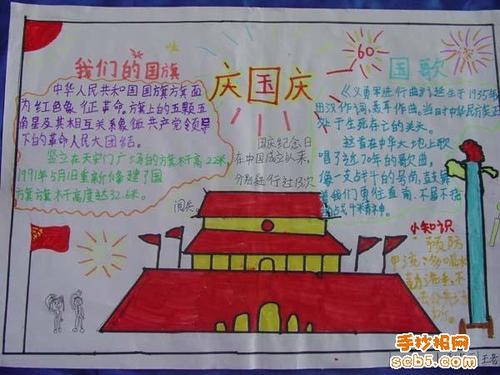 我们的国旗
中华人民共和国国旗旗面
为红色象征革命.旗上的五颗五
角星及其相互关系象征共产党领导
下的革命人民大团结.
竖立在天安门广场的旗杆高22米
1991年5月1日重新修建了国
旗旗杆高度达32.6米.
庆国庆
60
国庆纪念日
在中国成立以来,
分别进行过13次
阅兵
国歌
《义勇军进行曲》诞生于1935年
田汉作词,聂耳作曲.当时中华民族正
处于生死存亡的关头
这首在中华大地上歌
唱了近70年的歌曲.
像一支战斗的号角,鼓舞
着我们勇往直前,不屈不挠
的战斗精神.
小知识
预防
甲流
手抄报网
scb5.com